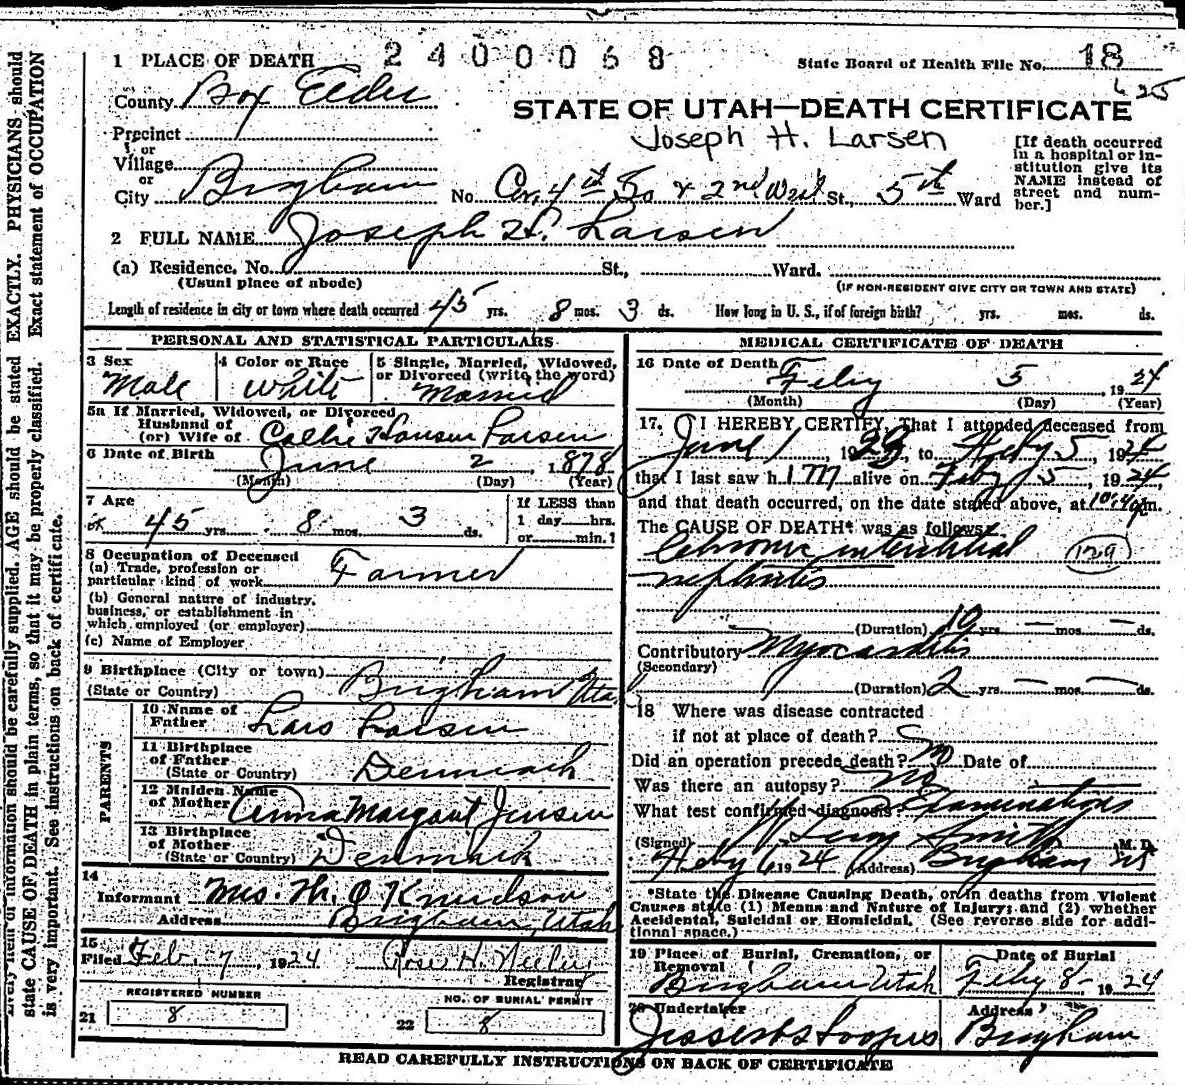 1 PLACE OF DEATH 2400068 State Board of Health File No. 18
County Box Elder
STATE OF UTAH—DEATH CERTIFICATE
Joseph H. Larsen
Precinct
or
Village
or
City Brigham No. Cor. 4th So & 2nd West St., 5th Ward
[If death occurred
in a hospital or in-
stitution give its
NAME instead of
street and num-
ber.]
2 FULL NAME Joseph H. Larsen
(a) Residence. No. St., Ward.
(Usual place of abode) (IF NON-RESIDENT GIVE CITY OR TOWN AND STATE)
Length of residence in city or town where death occurred 45 yrs. 8 mos. 3 ds. How long in U. S., if of foreign birth? yrs. mos. ds.
PERSONAL AND STATISTICAL PARTICULARS
3 Sex
Male
4 Color or Race
White
5 Single, Married, Widowed,
or Divorced (write the word)
Married
5a If Married, Widowed, or Divorced
Husband of
(or) Wife of Hansen Larsen
6 Date of Birth
June 2, 1878
(Month) (Day) (Year)
7 Age
45 yrs. 8 mos. 3 ds.
If LESS than
1 day hrs.
or min.?
8 Occupation of Deceased
(a) Trade, profession or
particular kind of work Farmer
(b) General nature of industry,
business, or establishment in
which employed (or employer)
(c) Name of Employer
9 Birthplace (City or town)
(State or Country) Brigham Utah
PARENTS
10 Name of
Father Lars Larsen
11 Birthplace
of Father
(State or Country) Denmark
12 Maiden Name
of Mother Anna Margaret Jensen
13 Birthplace
of Mother
(State or Country) Denmark
14
Informant Mrs. M. O Knudson
Address Brigham, Utah
15
Filed Feb. 7, 1924 Rose H.
Registrar
REGISTERED NUMBER
21 8
NO. OF BURIAL PERMIT
22 8
MEDICAL CERTIFICATE OF DEATH
16 Date of Death Feby 5, 1924
(Month) (Day) (Year)
17. I HEREBY CERTIFY, That I attended deceased from
June 1, 1923, to Feby 5, 1924
that I last saw him alive on Feby 5, 1924,
and that death occurred, on the date stated above, at 10:40 m.
The CAUSE OF DEATH* was as follows:
Chronic interstitial 129
nephritis
(Duration) 10 yrs. — mos. — ds.
Contributory Myocarditis
(Secondary)
(Duration) 2 yrs. — mos. — ds.
18 Where was disease contracted
if not at place of death?
Did an operation precede death? no Date of
Was there an autopsy? no
What test confirmed diagnosis? Examinations
(Signed) Leroy Smith M. D.
Feby 6, 1924 (Address) Brigham
*State the Disease Causing Death, or in deaths from Violent
Causes state (1) Means and Nature of Injury; and (2) whether
Accidental, Suicidal or Homicidal. (See reverse side for addi-
tional space.)
19 Place of Burial, Cremation, or
Removal
Brigham Utah
Date of Burial
Feby 8 1924
20 Undertaker
Address
Brigham
READ CAREFULLY INSTRUCTIONS ON BACK OF CERTIFICATE
information should be carefully supplied. AGE should be stated EXACTLY. PHYSICIANS should
state CAUSE OF DEATH in plain terms, so that it may be properly classified. Exact statement of OCCUPATION
is very important. See instructions on back of certificate.